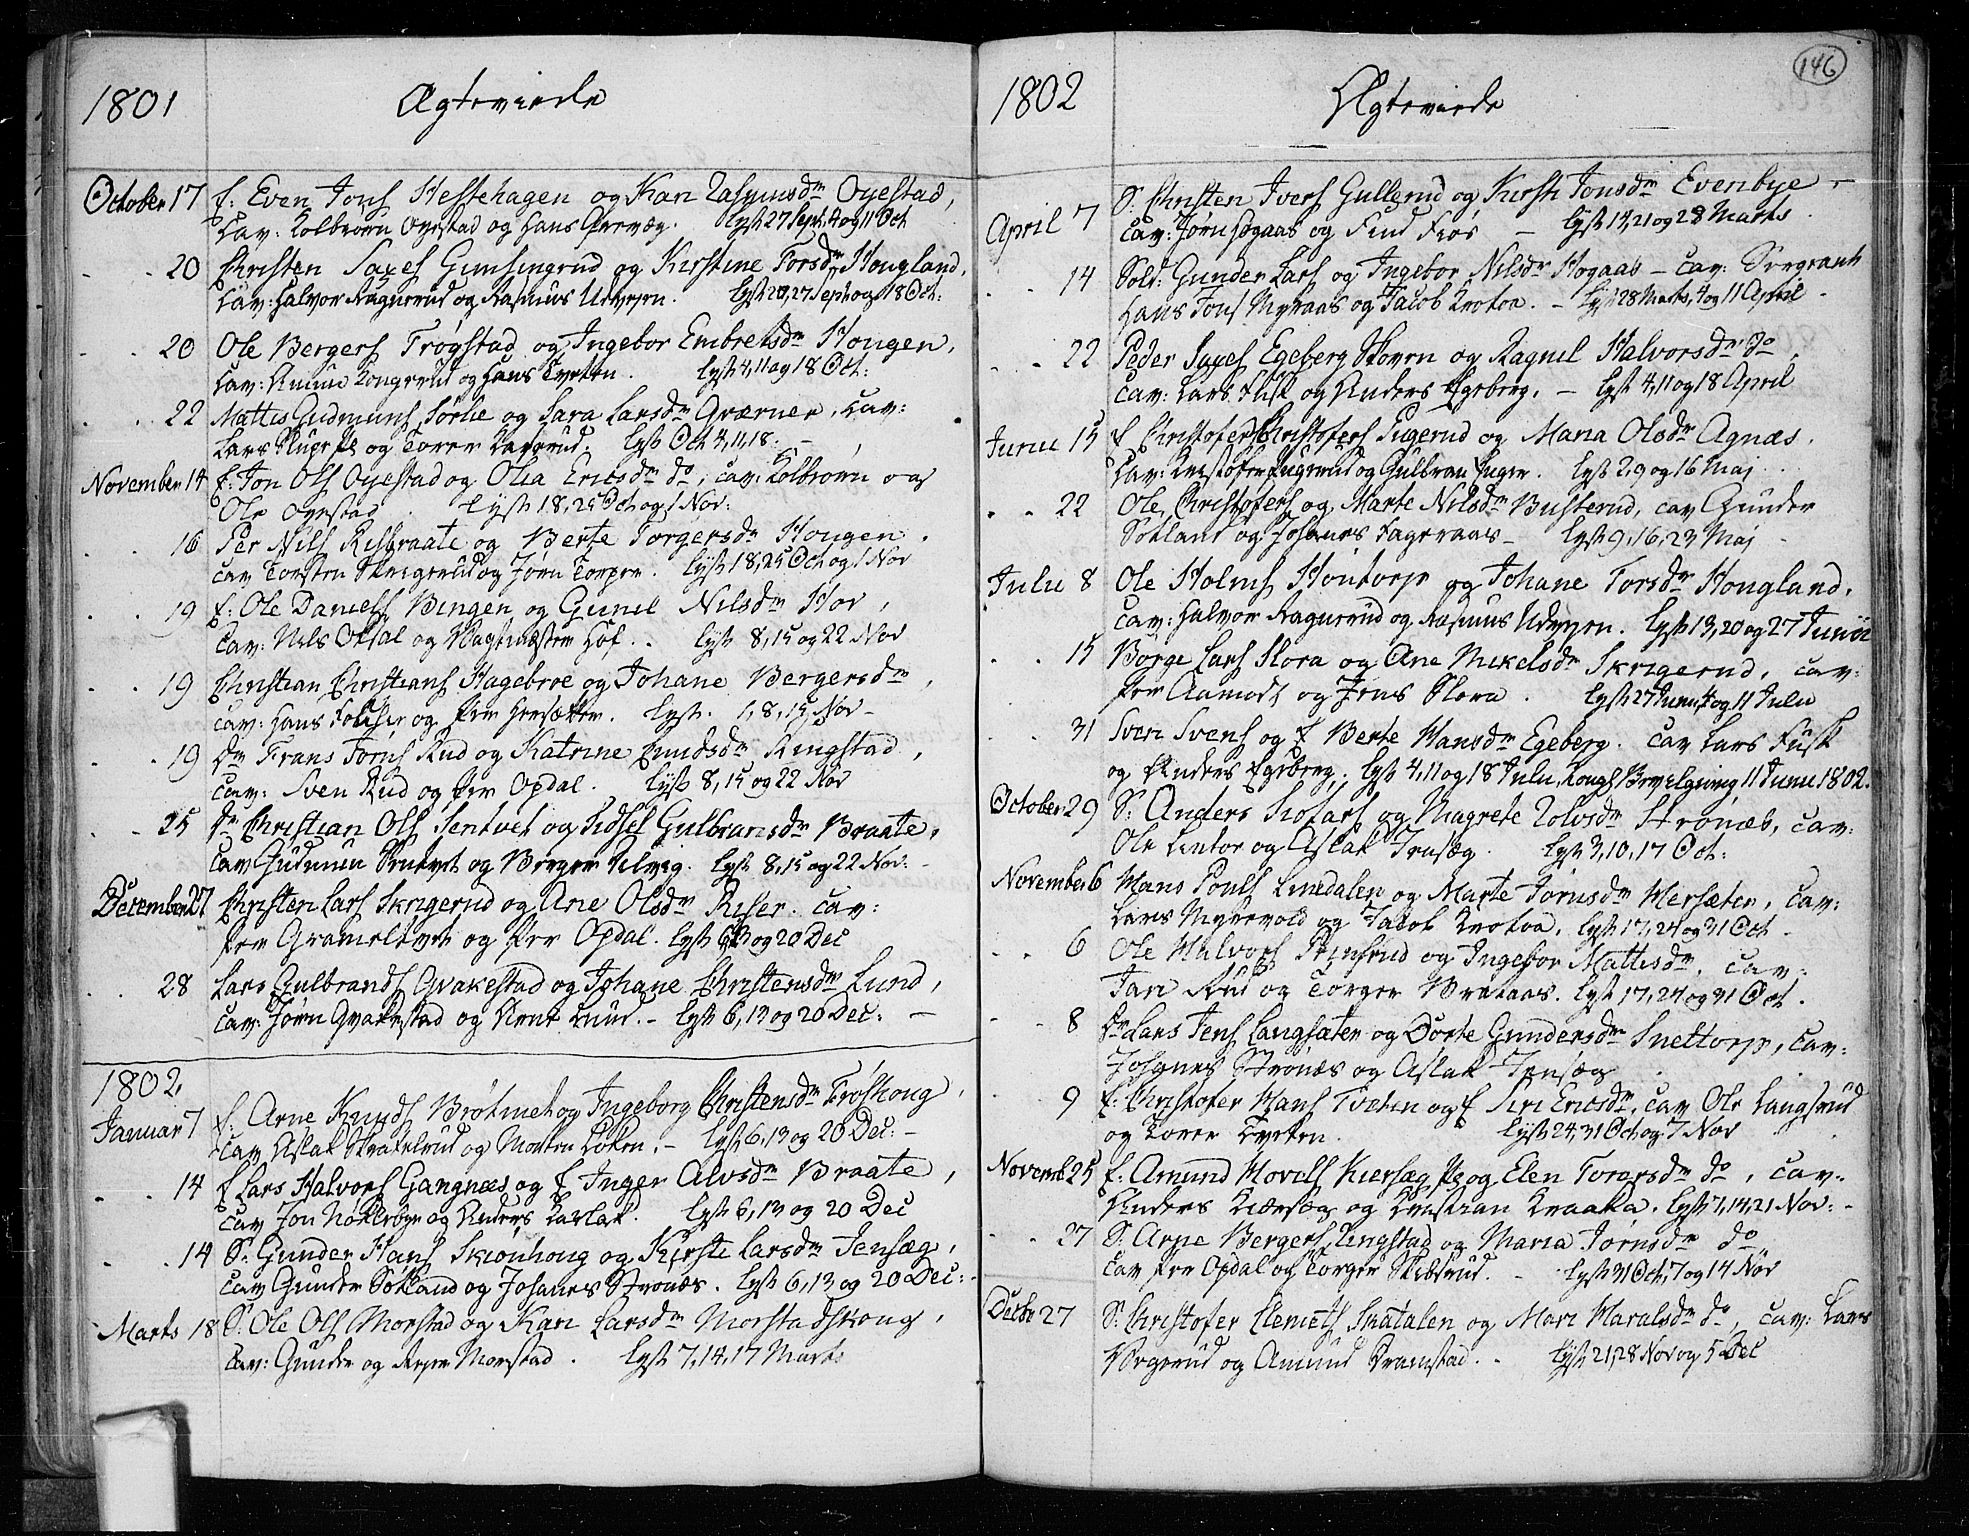 1801 Ægteviede
October 17 f: Even Jons Hestehagen og Kari Rasmusdr Oyestad,
Cav: Kolbiørn Oyestad og Hans lyst 27 Sept. 4 og 11 Oct
20 Christen Gimsingrud og Kirstine Torsdr Hougland,
Cav: Halvor Ragnerud og Rasmus Udnesen. lyst 20, 27 Sept og 18 Oct:
20 Ole Bergers Trøgstad og Ingebor Embretsdr Hougen,
Cav: Amund Kongerud og Hans Tveten. lyst 4, 11 og 18 Oct:
22 Mattis Gudmuns Sørlie og Sara Larsdr Qværner, Cav:
Lars og Torer lyst Oct 4, 11, 18.
November 14 f: Jon Ols Oyestad og Olia Ericsdr do, cav: Kolbiørn og
Ole Oyestad lyst 18, 25 Oct og 1 Nov:
16 Per Nils Risbraate og Berte Torgersdr Hougen.
cav Torsten Skrigerud og Jørn Torper. lyst 18, 25 Oct og 1 Nov
19 f: Ole Daniels Bingen og Gunil Nilsdr Hov,
Cav: Nils Opsal og Vagtmester Hof. lyst 8, 15 og 22 Nov
19 Christian Christians Hagebroe og Johane Bergersdr,
cav: Hans og Per Hersæter. lyst. 1, 8, 15, Nov
19 Dr Frans Jørns Rud og Katrine Amundsdr Ringstad,
cav: Sven Rud og Per Opdal. lyst 8, 15 og 22 Nov
25 Dr Christian Ols Sentvet og Sidsel Gulbransdr Braate,
Cav Gudmun Sentvet og Berger Ulvig. lyst 8, 15 og 22 Nov:
December 27 Christen Lars Skrigerud og Ane Olsdr Riser. cav:
Per Grameltvet og Per Opdal. lyst 6, 13 og 20 Dec
28 Lars Gulbrands Qvakestad og Johane Christensdr Lund,
Cav: Jørn Qvakestad og Arne Lund. lyst 6, 13 og 20 Dec:
1802
Januar 7 f. Arne Knuds Brøtmet og Ingeborg Christensdr Frøshoug,
Cav Aslak Skrabelrud og Morten Løken. lyst 6, 13 og 20 Dec:
14 f Lars Halvors Gangnæs og f Inger Alvsdr Braate,
Cav Jon Nøklebye og Anders Karlak. lyst 6, 13 og 20 Dec
14 S: Gunder Hans Skiønhoug og Kirsti Larsdr Jensæg,
Cav Gunder Søtland og Johanes Strønæs. lyst 6, 13 og 20 Dec:
Marts 18 S: Ole Ols Morstad og Kari Larsdr Morstadskoug,
Cav: Gunder og Asper Morstad. lyst 7, 14, 17 Marts
1802 Ægteviede 146
April 7 S. Christen Ivers Gullerud og Kirsti Jonsdr Evenbye,
Cav: Jørn Høgaas og Find Fiøs lyst 14, 21 og 28 Marts
14 Sold: Gunder Lars og Ingebor Nilsdr Høgaas - Cav: Sergeant
Hans Jons Myraas og Jacob Krotoa. lyst 28 Marts, 4 og 11 April
22 Peder Egeberg Skoven og Ragnil Halvorsdr do,
Cav: Lars Fusk og Anders Egeberg. lyst 4, 11 og 18 April
Junii 15 f Christofer Christofers Sugerud og Maria Olsdr Agnæs.
Cav: Christofer Sugerud og Gulbran lyst 2, 9 og 16 Maj
22 Ole Christofers og Marte Nilsdr Busterud, cav Gunder
Søtland og Johanes Fageraas lyst 9, 16, 23 Maj
Julii 8 Ole Holms Hontorp og Johane Torsdr Hougland.
Cav: Halvor Ragnerud og Rasmus Udnesen. lyst 13, 20 og 27 Junii
15 Børge Lars Slora og Ane Mikelsdr Skrigerud, cav:
Per Aamodt og Jens Slora. lyst 27 Junii, 4 og 11 Julii
31 Sven Svens og f Berte Hansdr Egeberg. Cav Lars Fusk
og Anders Egeberg. lyst 4, 11 og 18 Julii, Kongl Bevelgning 11 Junii 1802.
October 29 S: Anders og Magrete Rolvsdr Strønæs, Cav:
Ole Kintor og Aslak Jensæg. lyst 3, 10, 17 Oct:
November 6 Hans Pouls Linedalen og Marte Jørnsdr Hersæter, cav:
Lars Myrevold og Jacob Krotoa. lyst 17, 24 og 31 Oct
6 Ole Halvors og Ingebor Mattisdr. cav:
Jan Rud og Torger Brataas. lyst 17, 24 og 31 Oct.
8 Dr Lars Jens Langsæter og Dorte Gundersdr Snettorp, cav:
Johanes Strønæs og Aslak Jensæg
9 f: Christofer Hans Tveten og f Siri Ericsdr, cav Ole Langsrud
og Torer Tveten. lyst 24, 31 Oct og 7 Nov
Novemb. 25 f: Amund Hovels Kiersæg og Elen Torersdr do, cav:
Anders Kiærsæg og Christian Kraaka. lyst 7, 14, 21 Nov:
27 S: Arne Bergers Ringstad og Maria Jørnsdr do
Cav Per Opdal og Torger Skibsrud. lyst 31 Oct, 7 og 14 Nov
Decbr 27 S: Christofer Clemets Skatalen og Mari Haraldsdr do, Cav: Lars
Vorgerud og Amund Framstad. lyst 21, 28 Nov og 5 Dec